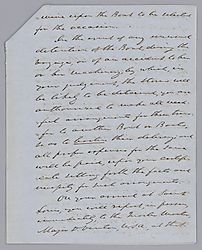 upon the Boat to be selected
for the occasion.
In the event of any unusual
detention of the Boat, during the
voyage, or of an accident to her
or her machinery, by which in
your judgement, the stores will
be likely to be detained, you are
authorized to make all need-
ful arrangements for their trans-
fer to another Boat or Boats,
so as to hasten their delivery; and
all proper expenses for the same
will be paid, upon your certifi-
cate setting forth the facts and
necessity for such arrangements.
On your arrival at Saint
Louis, you will report, in person
immediately to the Quarter Master,
Major